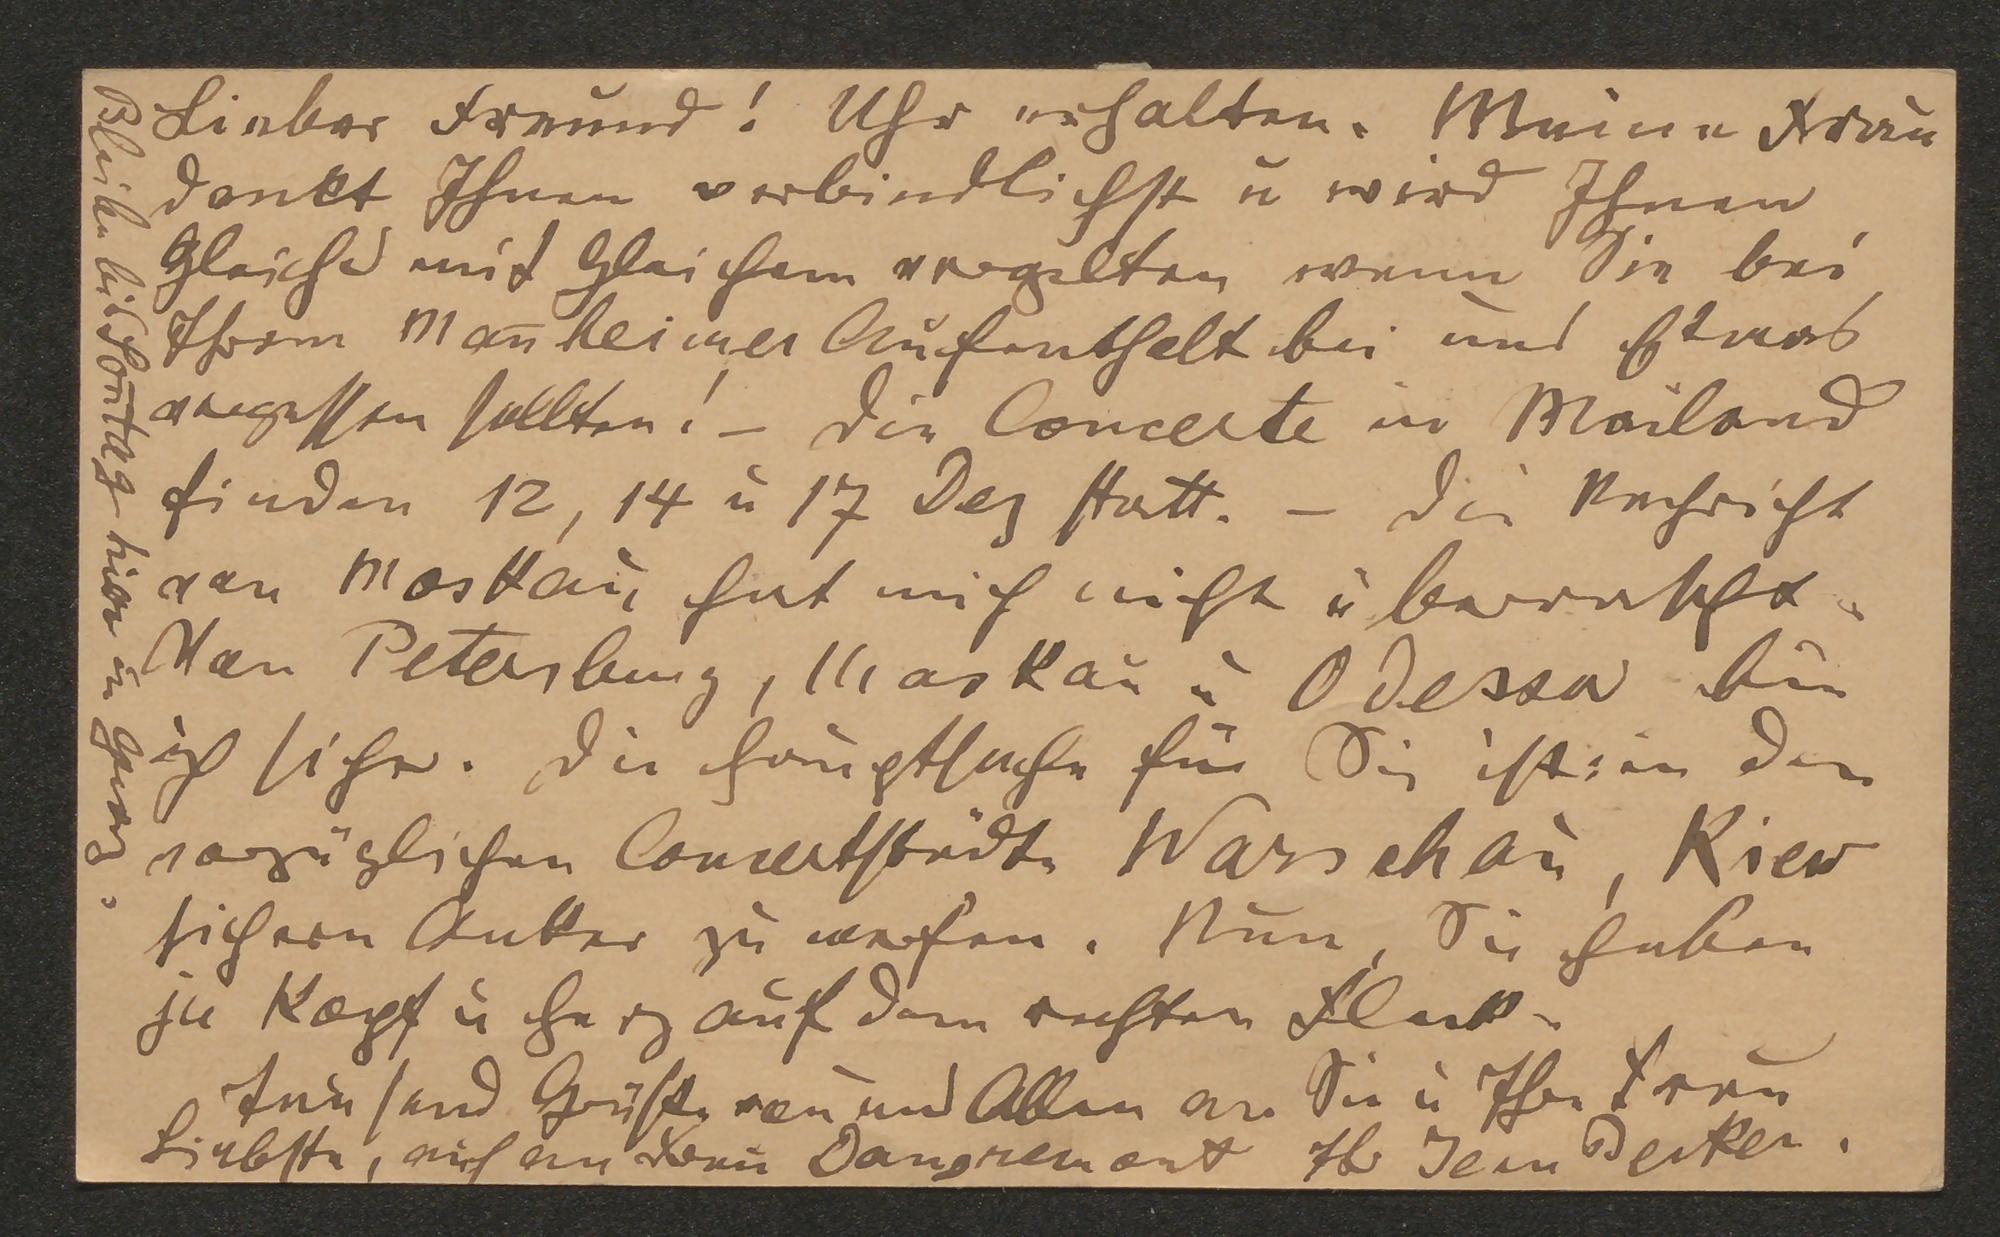 Lieber Freund! Uhr erhalten. Meine Frau
dankt Ihnen verbindlichst u wird Ihnen
Gleiches mit Gleichem vergelten wenn Sie bei
Ihrem Man̄heimer Aufenthalt bei uns Etwas
vergessen sollten! – Die Concerte in Mailand
finden 12, 14 u 17 Dez statt. – Die Nachricht
von Moskau, hat mich nicht überrascht.
Von Petersburg, Moskau u Odessa bin
ich sicher. Die Hauptsache für Sie ist: in den
vorzüglichen Concertstädte Warschau, Kiew
sichern Anker zu werfen. Nun, Sie haben
ja Kopf u Herz auf dem rechten Fleck.
Tausend Grüße von uns Allen an Sie u Ihre Frau
Liebste, auch an Frau Dangremont Ihr Jean Becker.
Bleibe bis Son̄tag hier in